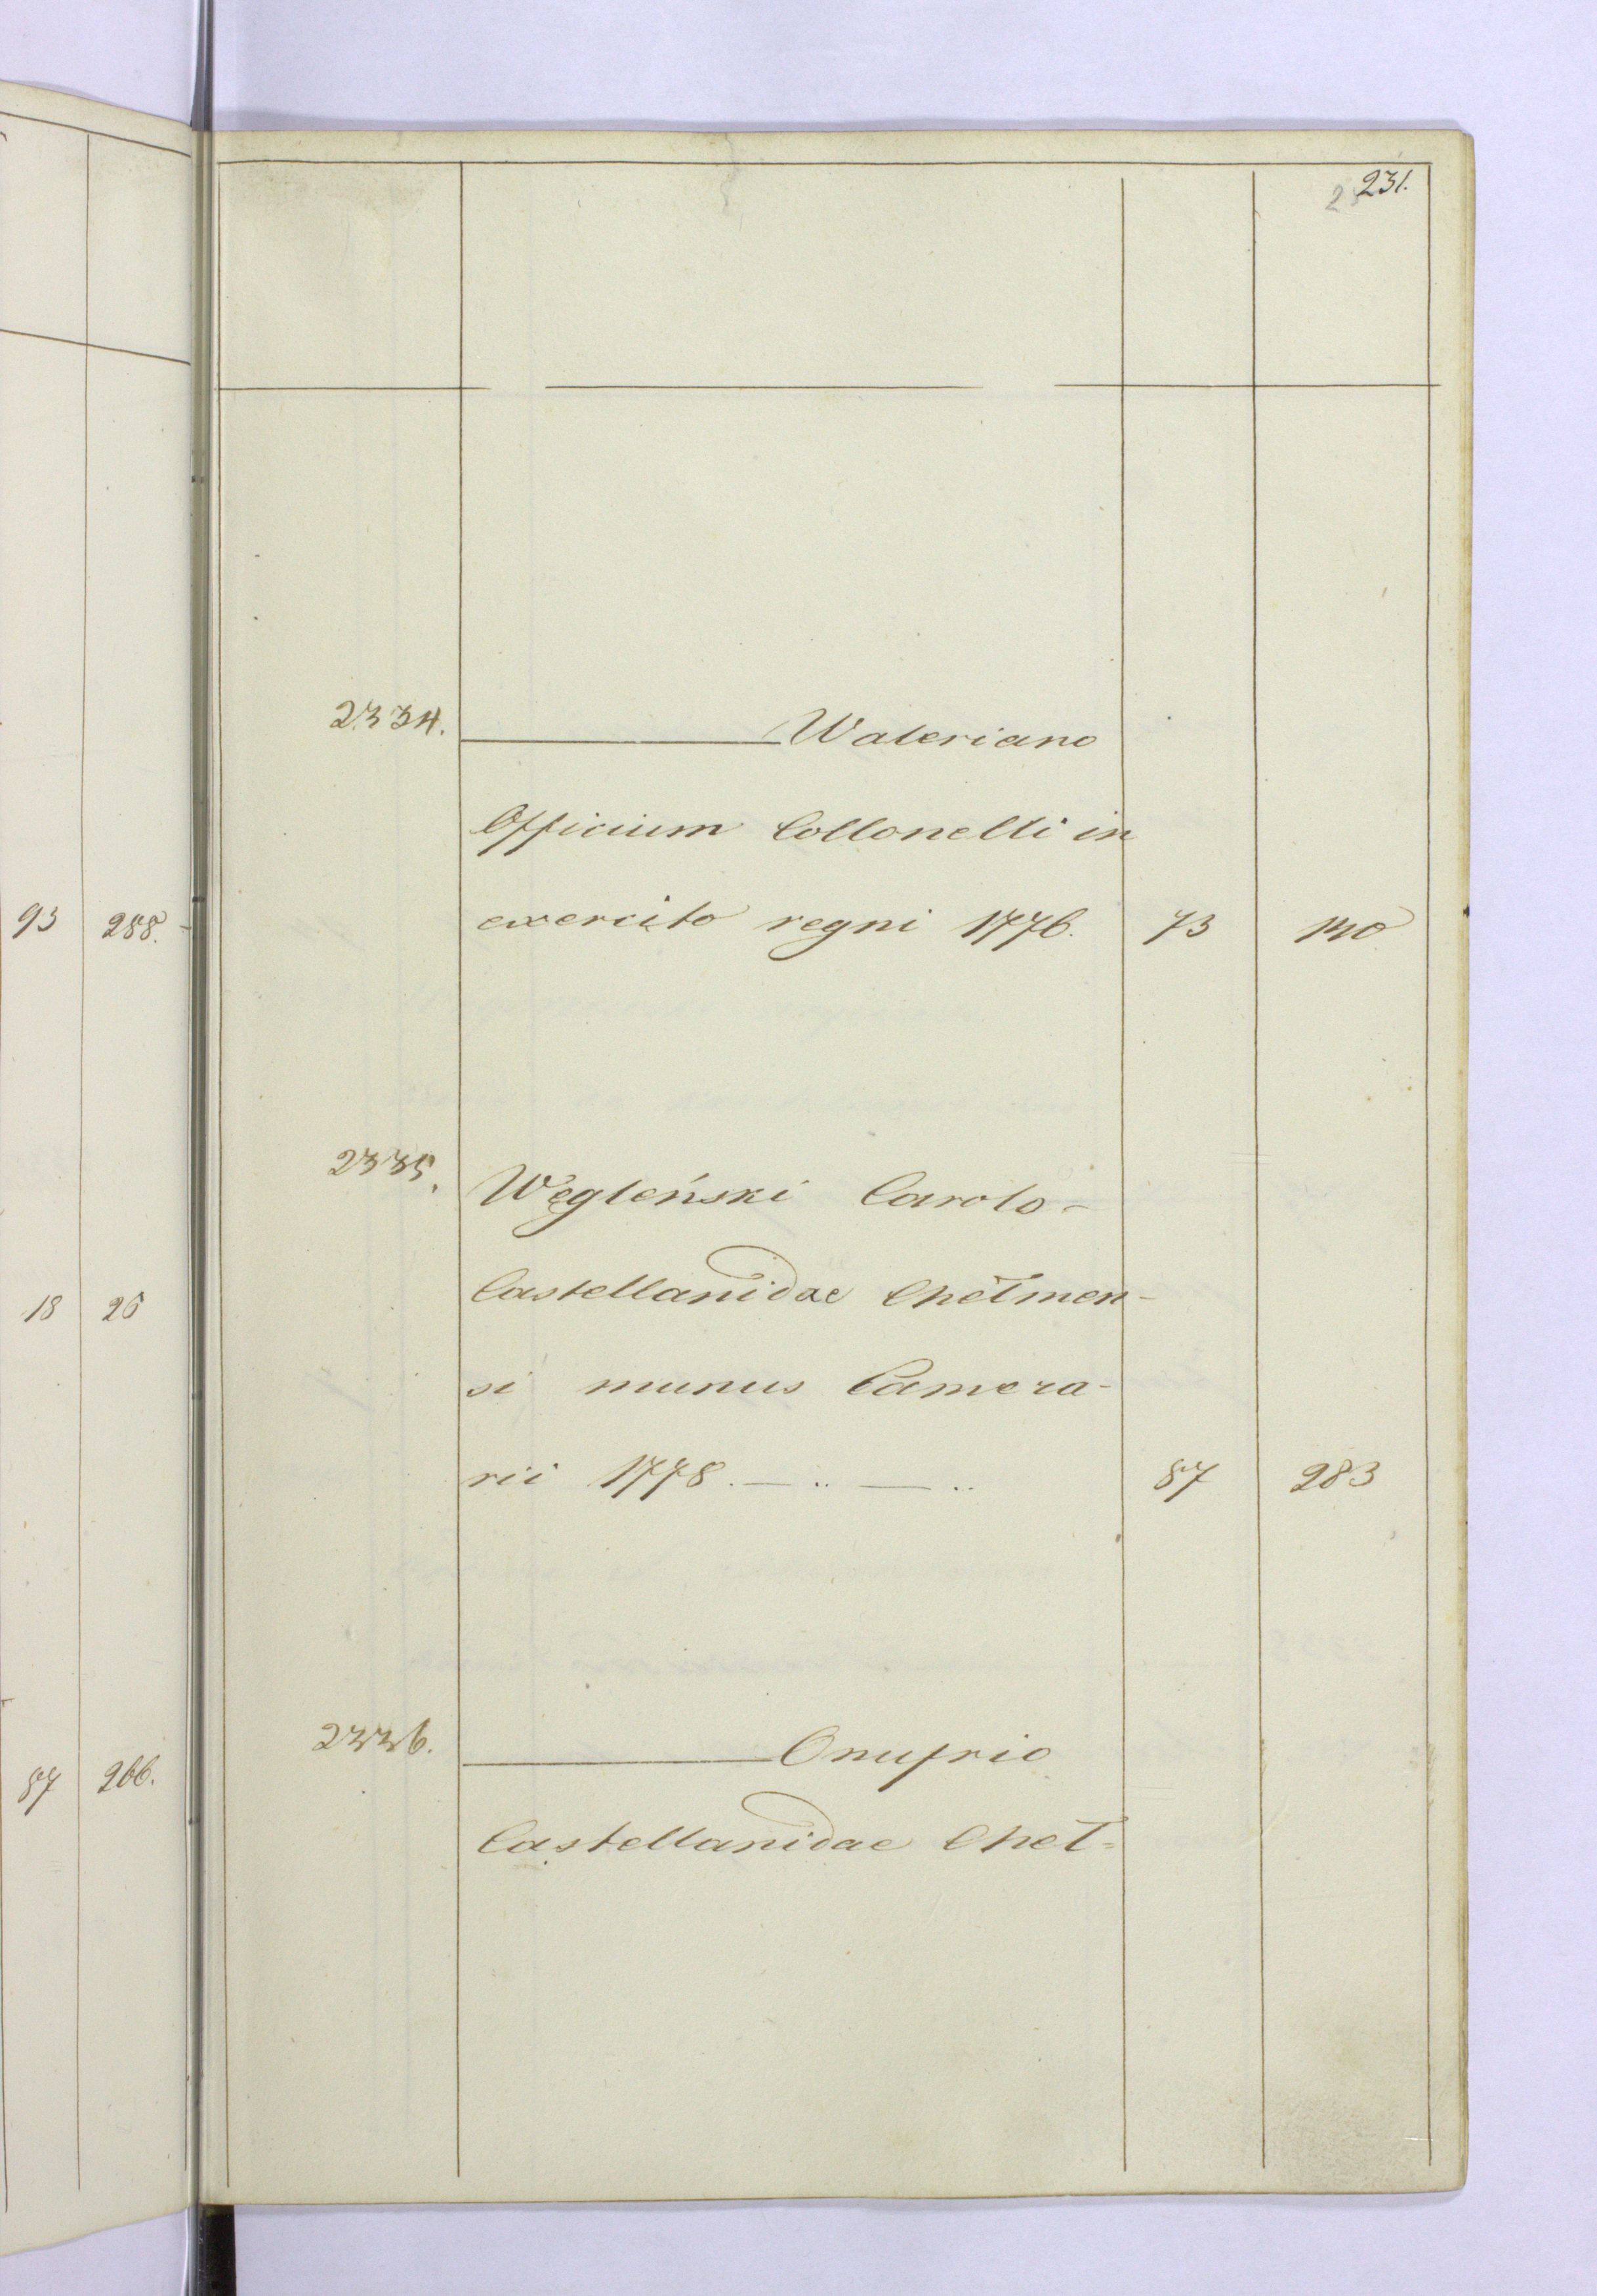 231.
93 288.
18 26
87 266.
2334. Waleriano
Officium Collonelli in
exercito regni 1776. 73 140
2335. Węgleński Carolo-
Castellanidae Chełmen-
si munus Camera-
rii 1778. 87 283
2336. Onufrio
Castellanidae Cheł=